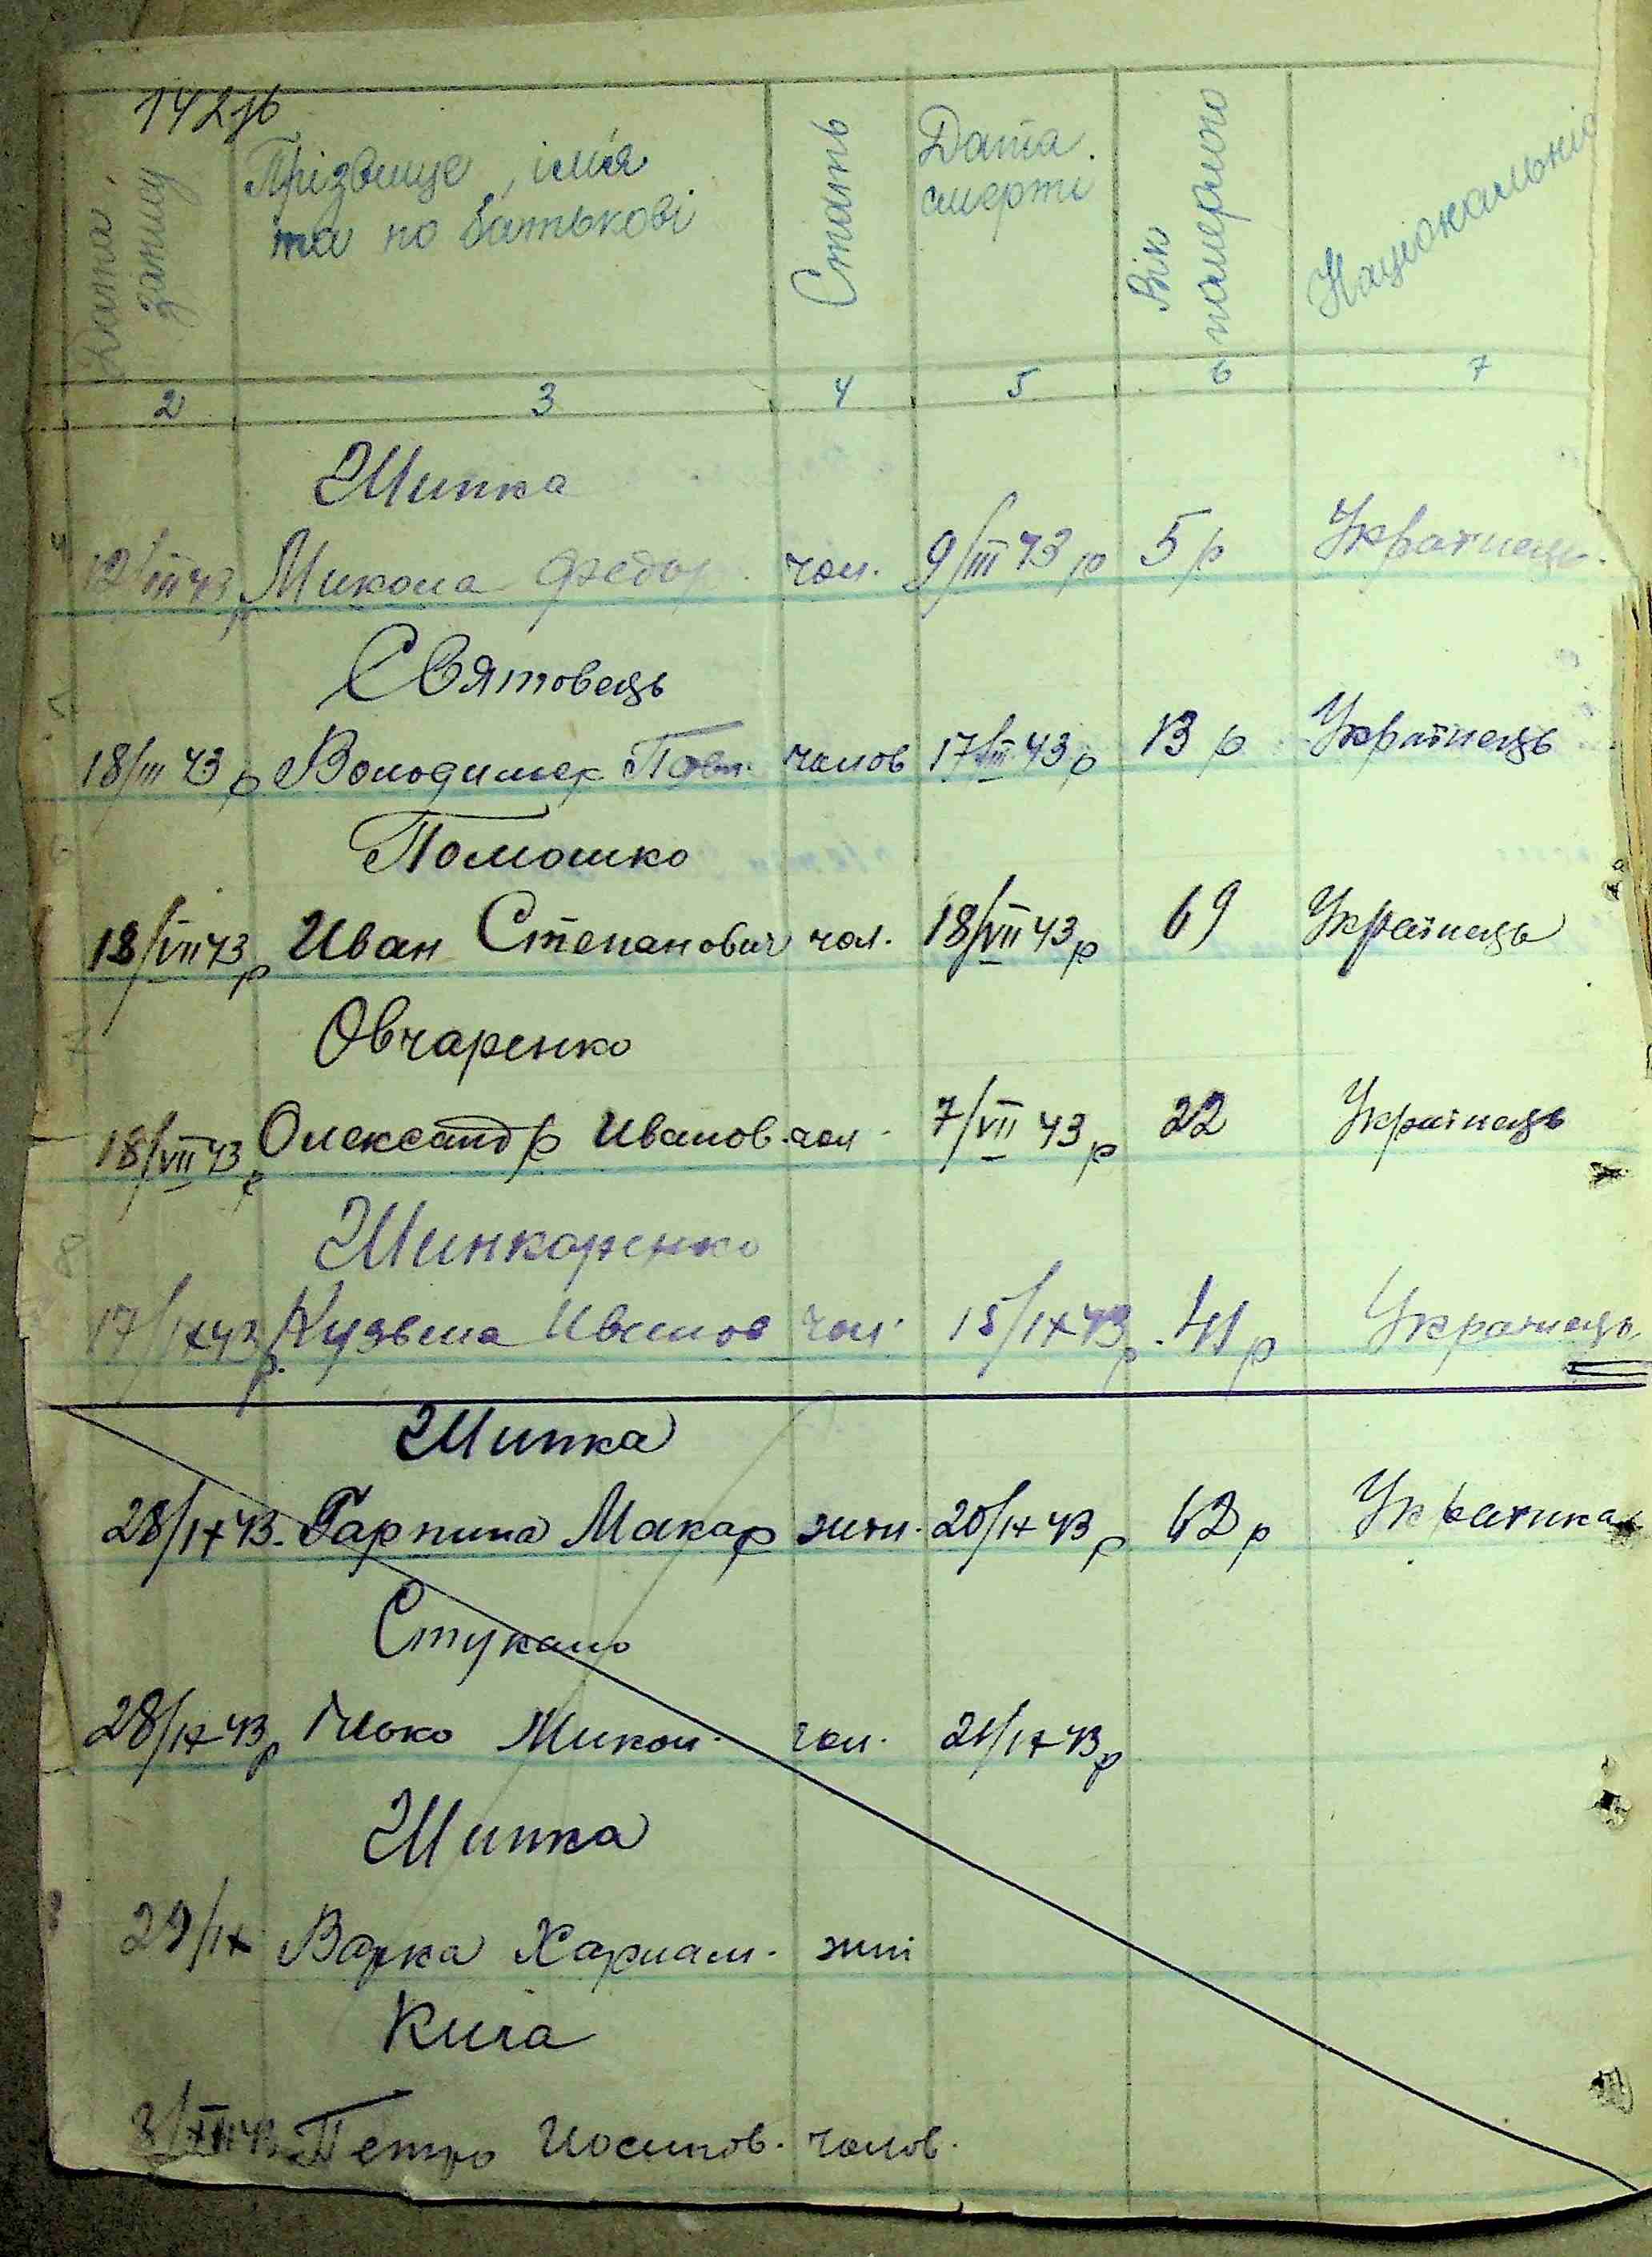 142зв
Дата запису
Прізвище, ім'я та по батькові
Стать
Дата смерти
Вік померлого
Національніс
2 3 4 5 6 7
Шипка
12/III 43 р Микола Федор. чол. 9/III 43 р 5 р Українець.
Святовець
18/III 43 р Володимер Павл. чолов 17/III 43 р 13 р Українець
Помошко
18/VII 43 р Иван Степанович чол. 18/VII 43 р 69 Українець
Овчаренко
18/VII 43 р Олександр Иванов. чол. 7/VII 43 р 22 Українець
Шинкаренко
17/IX 43 р. Кузьма Иванов чол. 15/IX 43 р. 41 р Українець
Шипка
28/IX 43. Гарпина Макар жін. 20/IX 43 р 63 р Українка
Стукало
28/IX 43 р Микол. чол. 21/IX 43 р
Шипка
29/IX Варка Харлам. жін
Кича
3/XII 43 Петро Иосипов. чолов.